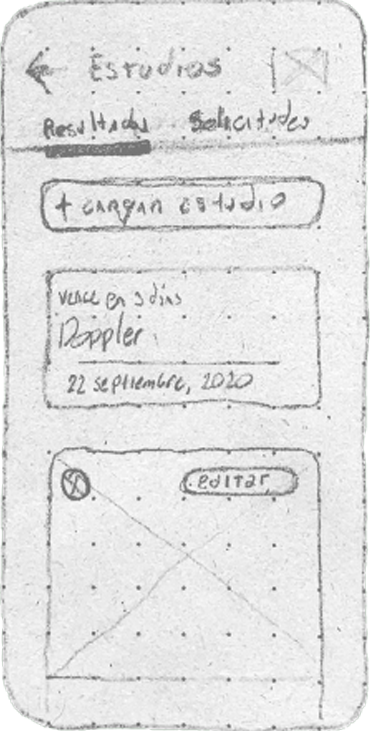 Estudios
Resultados Solicitudes
+ cargar estudio
vence en 3 días
Doppler
22 septiembre, 2020
X editar